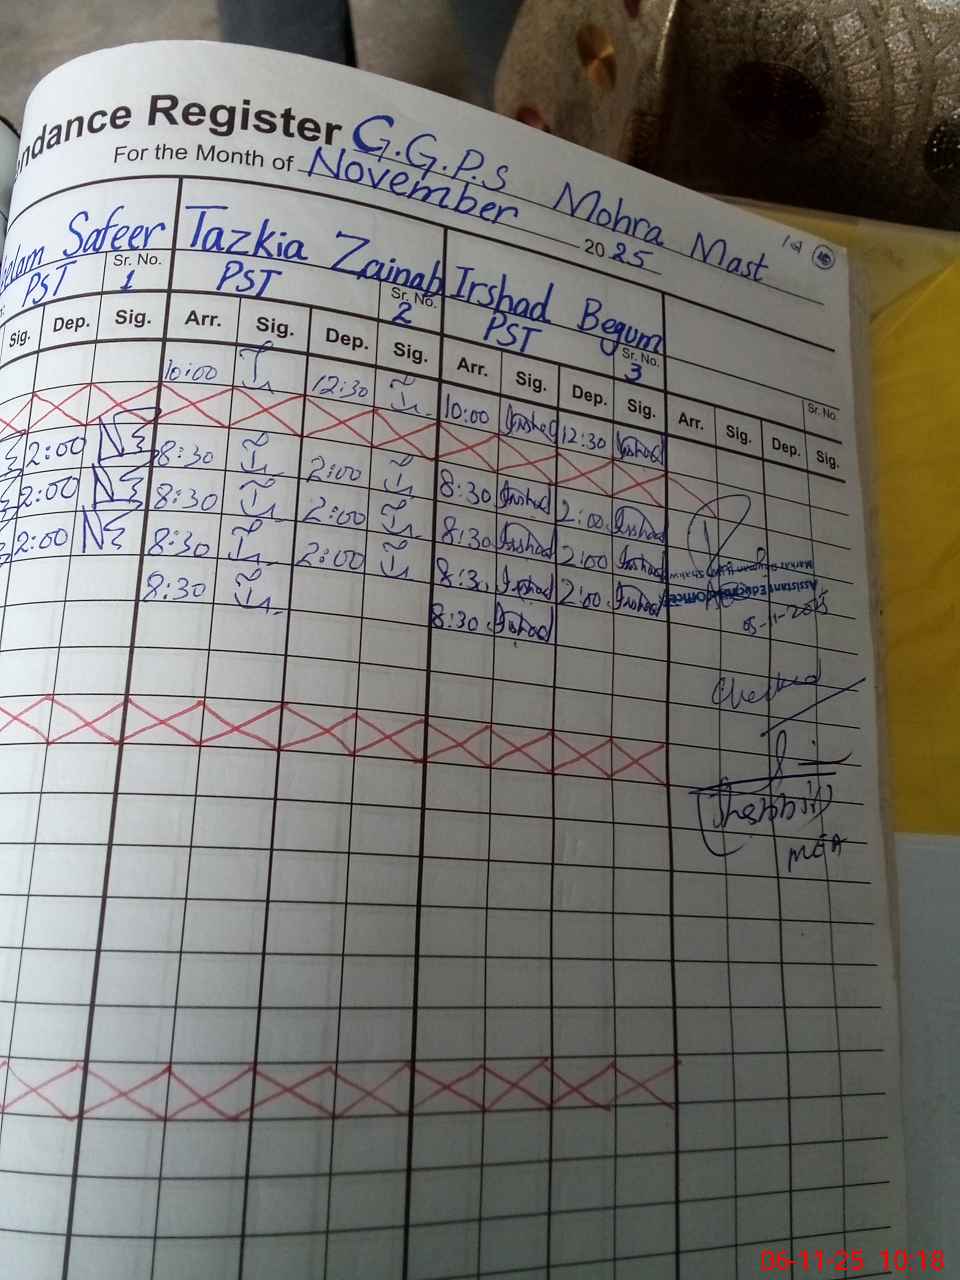 ndance Register G.G.P.S Mohra Mast
For the Month of November 2025
Safeer Tazkia Zainab Irshad Begum
PST Sr. No. 1 PST Sr. No. 2 PST Sr. No. 3 Sr. No.
Sig. Dep. Sig. Arr. Sig. Dep. Sig. Arr. Sig. Dep. Sig. Arr. Sig. Dep. Sig.
10:00 12:30 10:00 Irshad 12:30 Irshad
2:00 8:30 2:00 8:30 Irshad 2:00 Irshad
2:00 8:30 2:00 8:30 Irshad 2:00 Irshad
2:00 8:30 2:00 8:30 Irshad 2:00 Irshad
8:30 8:30 Irshad
Assistant Education Officer
05-11-2025
Checked
MEA
06-11-25 10:18